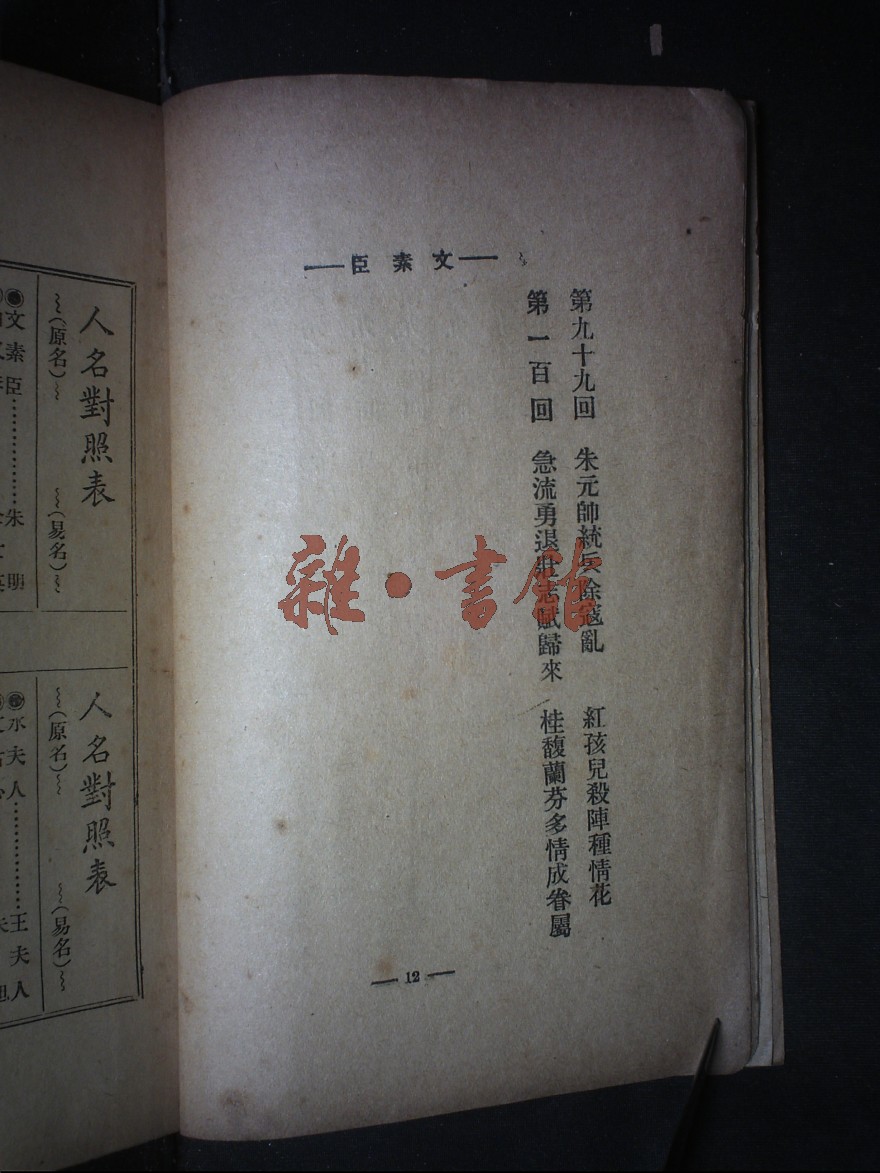 文素臣
第九十九回　朱元帥統兵除寇亂　紅孩兒殺陣種情花
第一百回　急流勇退壯志賦歸來　桂馥蘭芬多情成眷屬
12
雜·書館
人名對照表
（原名）　（易名）
文素臣……………朱明
人名對照表
（原名）　（易名）
水夫人……………王夫人